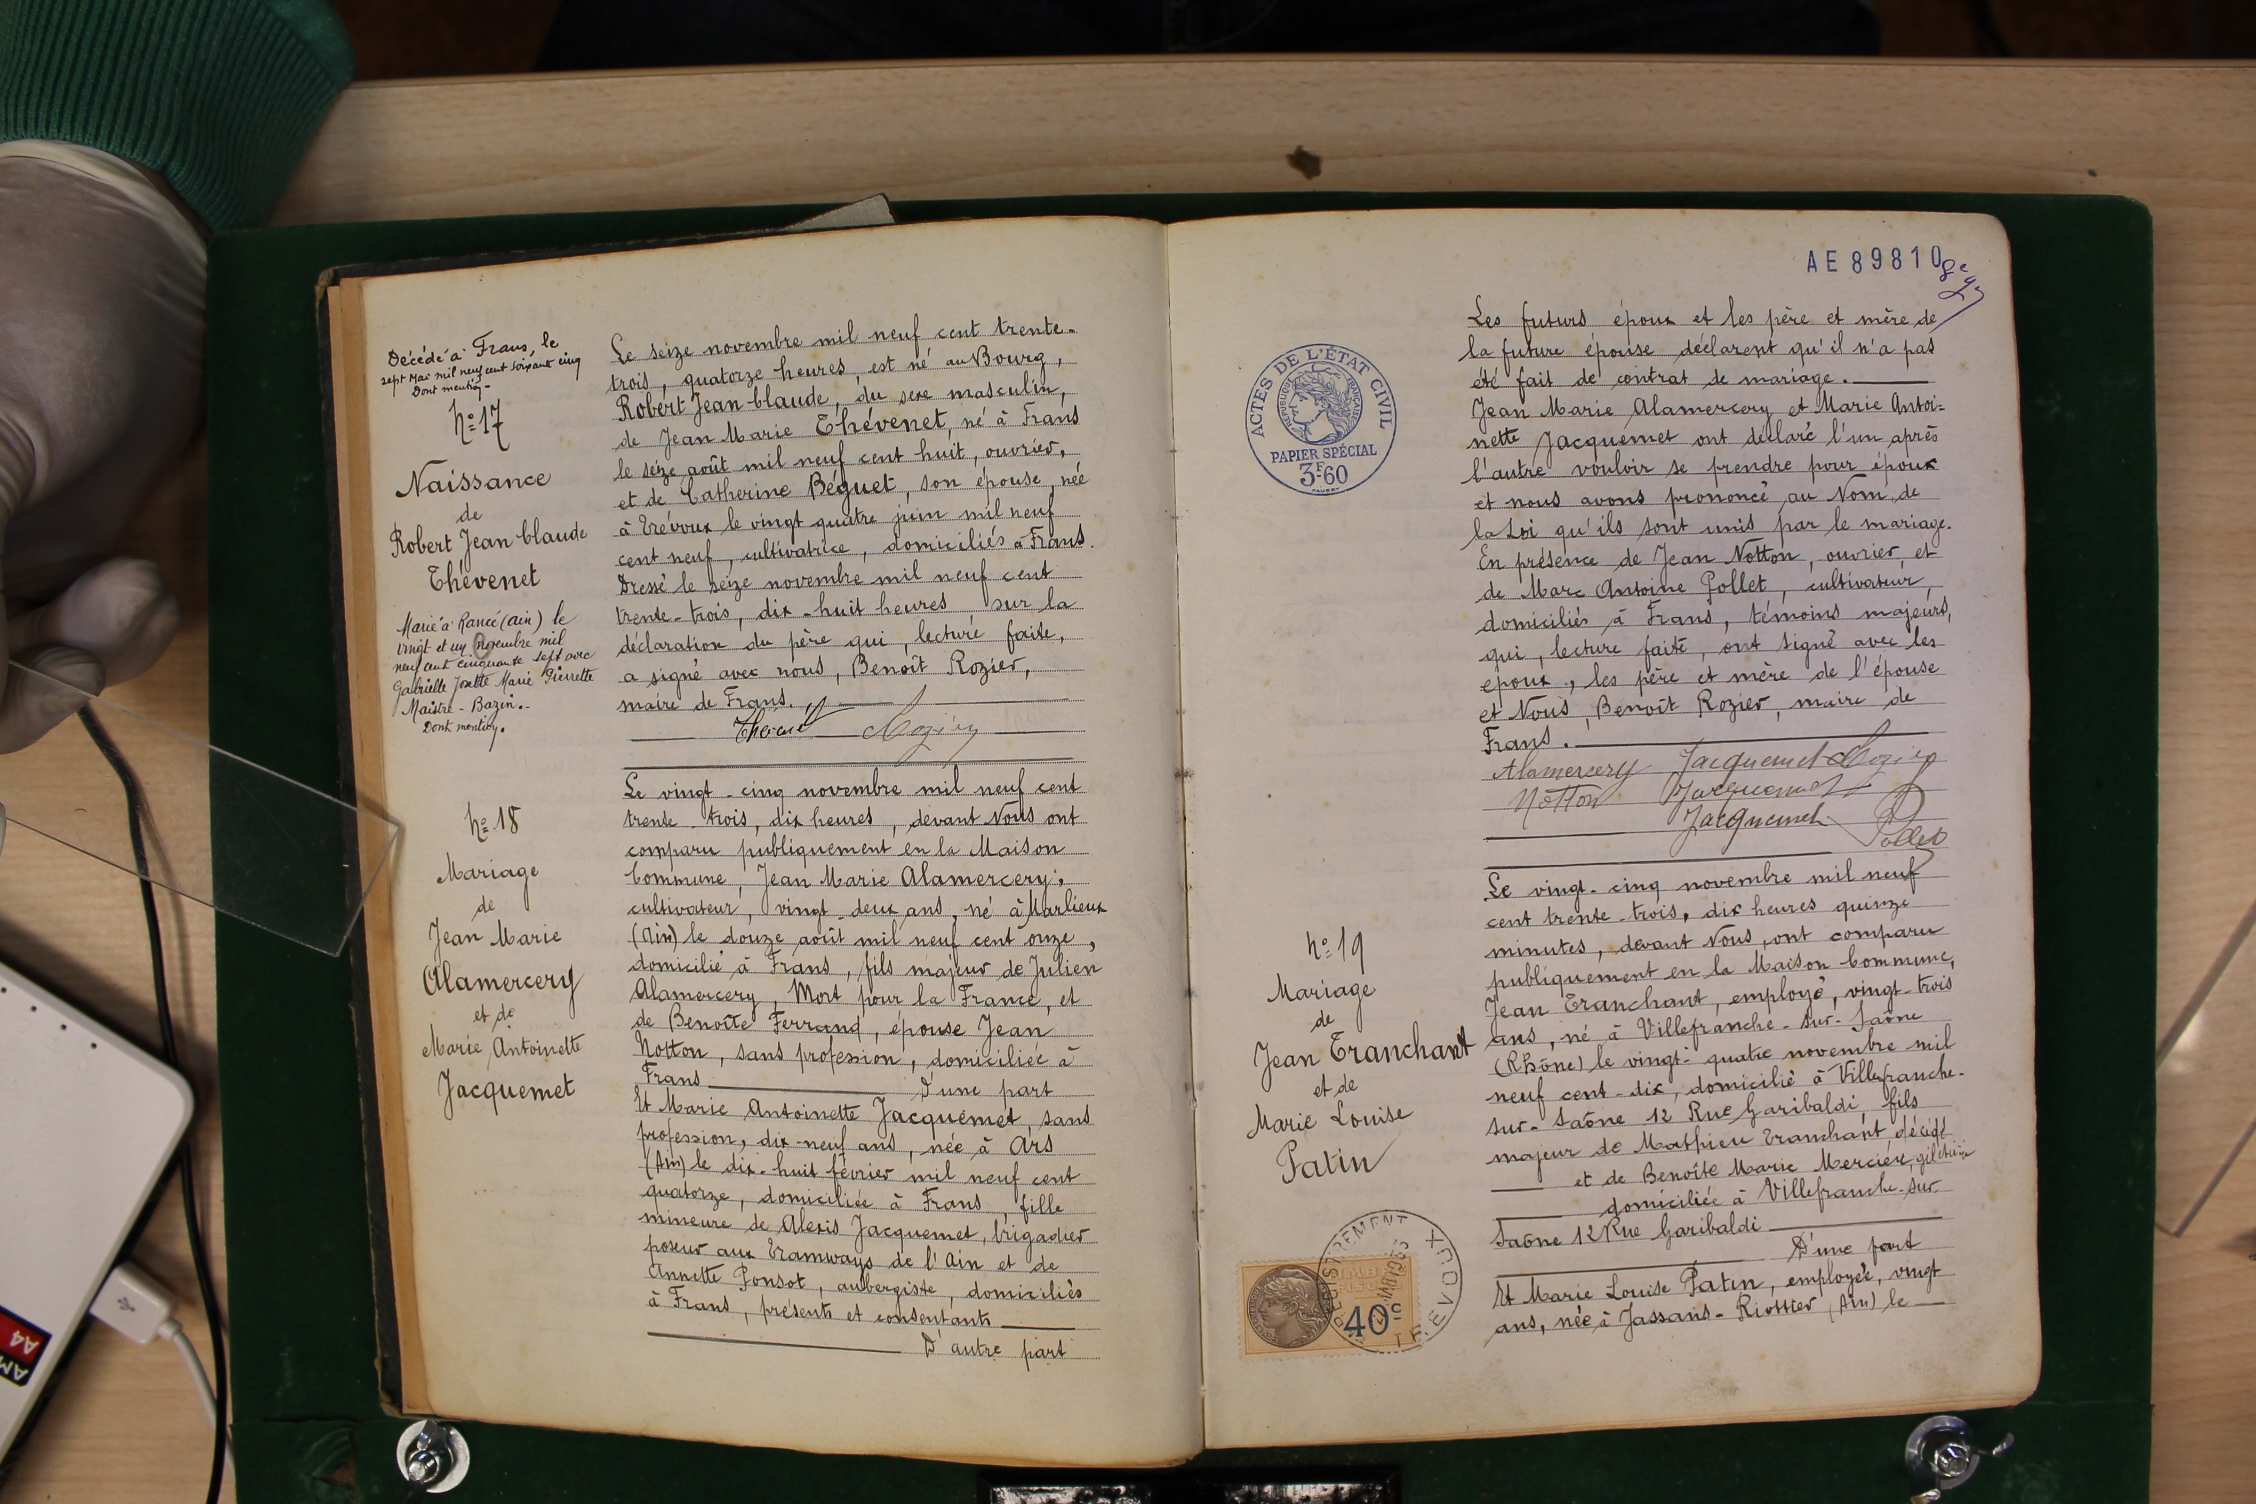 Décédé à Frans, le
sept Mai mil neuf cent soixante cinq
Dont mention.
Nº 17
Naissance
de
Robert Jean Claude
Thévenet
Marié à Rancé (Ain) le
vingt et un novembre mil
neuf cent cinquante sept avec
Gabrielle Josette Marie Pierrette
Maistre-Bazin.
Dont mention.
Le seize novembre mil neuf cent trente-
trois, quatorze heures, est né au Bourg,
Robert Jean Claude, du sexe masculin,
de Jean Marie Thévenet, né à Frans
le seize août mil neuf cent huit, ouvrier,
et de Catherine Béguet, son épouse, née
à Trévoux le vingt quatre juin mil neuf
cent neuf, cultivatrice, domiciliés à Frans.
Dressé le seize novembre mil neuf cent
trente-trois, dix-huit heures sur la
déclaration du père qui, lecture faite,
a signé avec nous, Benoît Rozier,
maire de Frans.
Thévenet Rozier
Nº 18
Mariage
de
Jean Marie
Alamercery
et de
Marie Antoinette
Jacquemet
Le vingt-cinq novembre mil neuf cent
trente-trois, dix heures, devant Nous ont
comparu publiquement en la Maison
Commune, Jean Marie Alamercery,
cultivateur, vingt-deux ans, né à Marlieux
(Ain) le douze août mil neuf cent onze,
domicilié à Frans, fils majeur de Julien
Alamercery, Mort pour la France, et
de Benoîte Ferrand, épouse Jean
Notton, sans profession, domiciliée à
Frans D'une part
Et Marie Antoinette Jacquemet, sans
profession, dix-neuf ans, née à Ars
(Ain) le dix-huit février mil neuf cent
quatorze, domiciliée à Frans, fille
mineure de Alexis Jacquemet, brigadier
poseur aux Tramways de l'Ain et de
Annette Ponsot, aubergiste, domiciliés
à Frans, présents et consentants
D'autre part
AE 89810
ACTES DE L'ÉTAT CIVIL
RÉPUBLIQUE FRANÇAISE
PAPIER SPÉCIAL
3F60
Les futurs époux et les père et mère de
la future épouse déclarent qu'il n'a pas
été fait de contrat de mariage.
Jean Marie Alamercery et Marie Antoi=
nette Jacquemet ont déclaré l'un après
l'autre vouloir se prendre pour époux
et nous avons prononcé au Nom de
la Loi qu'ils sont unis par le mariage.
En présence de Jean Notton, ouvrier, et
de Marc Antoine Pollet, cultivateur,
domiciliés à Frans, témoins majeurs,
qui, lecture faite, ont signé avec les
époux, les père et mère de l'épouse
et Nous, Benoît Rozier, maire de
Frans.
Alamercery Jacquemet Rozier
Notton Jacquemet
Jacquemet Pollet
Nº 19
Mariage
de
Jean Tranchant
et de
Marie Louise
Patin
Le vingt-cinq novembre mil neuf
cent trente-trois, dix heures quinze
minutes, devant Nous, ont comparu
publiquement en la Maison Commune,
Jean Tranchant, employé, vingt-trois
ans, né à Villefranche-sur-Saône
(Rhône) le vingt-quatre novembre mil
neuf cent-dix, domicilié à Villefranche-
sur-Saône 12 Rue Garibaldi, fils
majeur de Mathieu Tranchant, décédé
et de Benoîte Marie Mercier, giletière
domiciliée à Villefranche-sur-
Saône 12 Rue Garibaldi
D'une part
Et Marie Louise Patin, employée, vingt
ans, née à Jassans-Riottier (Ain) le
ENREGISTREMENT
TRÉVOUX
40c
A4